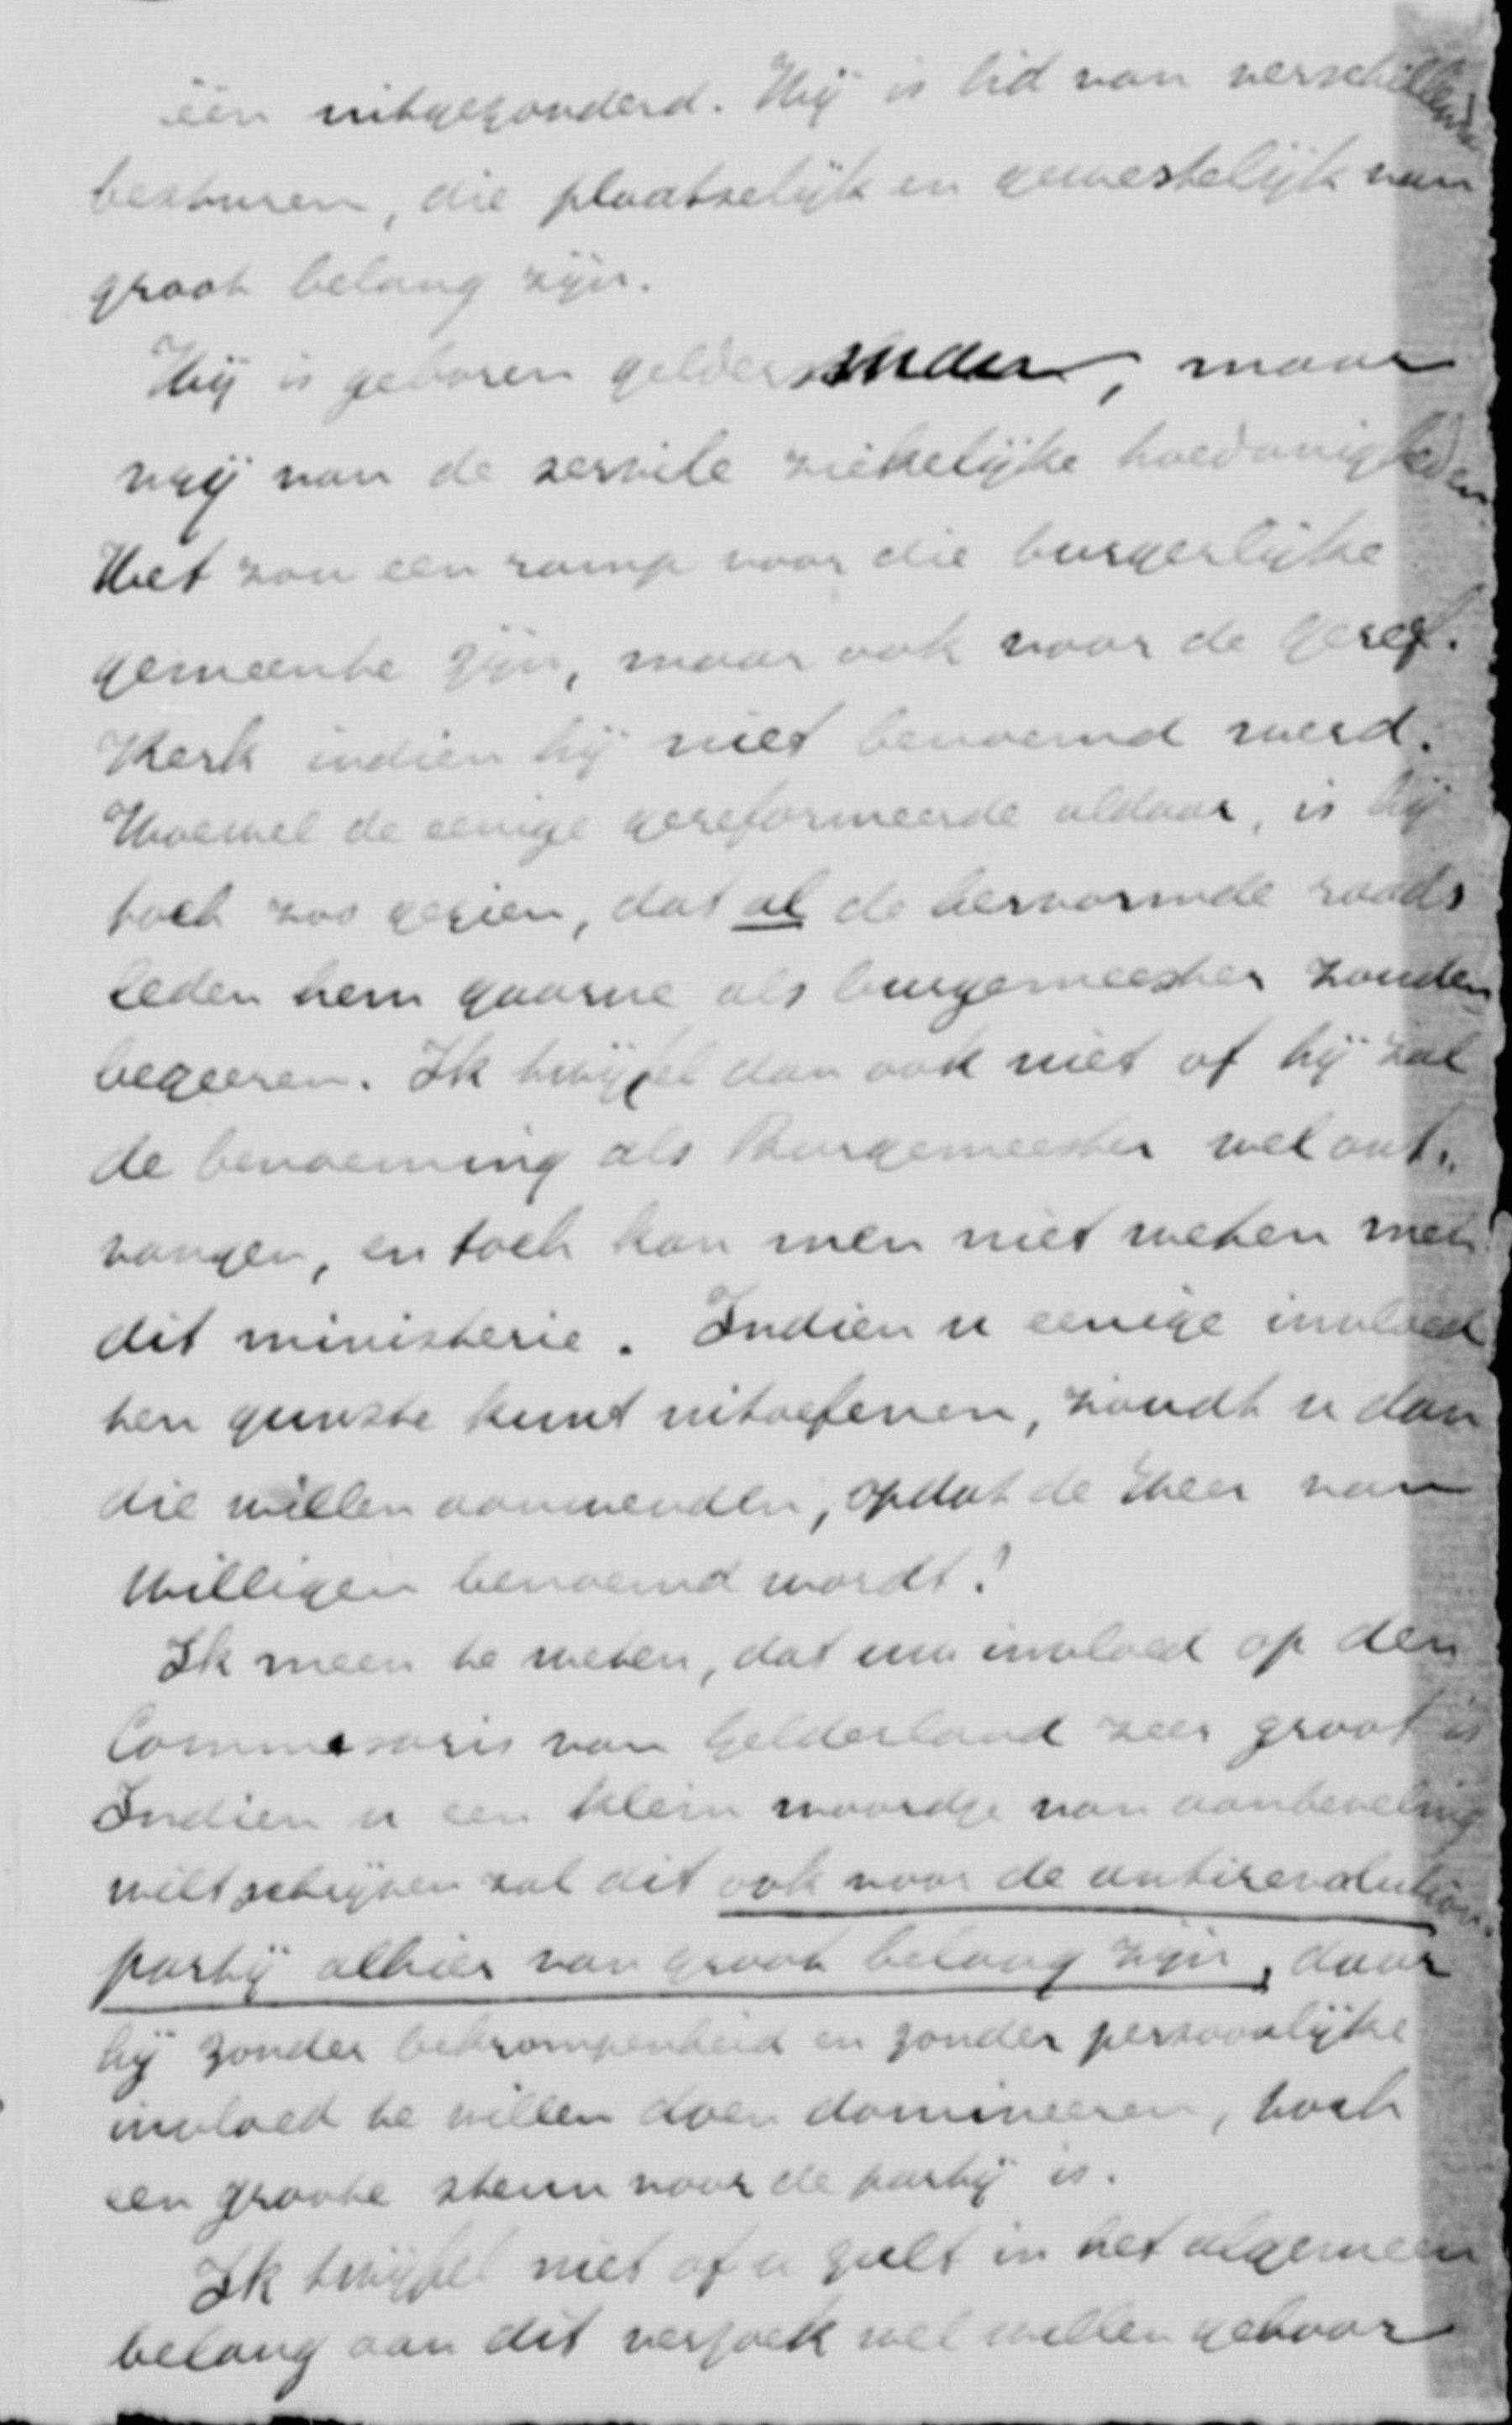 één uitgezonderd. Hij is lid van verschillende
besturen, die plaatselijk en gewestelijk van
groot belang zijn.
Hij is geboren gelderschman, maar
vrij van de servile ziekelijke hoedanigheden.
Het zou een ramp voor die burgerlijke
gemeente zijn, maar ook voor de geref.
Kerk indien hij niet benoemd werd.
Hoewel de eenige gereformeerde aldaar, is hij
toch zoo gezien, dat al de hervormde raads
leden hem gaarne als burgemeester zouden
begeeren. Ik twijfel dan ook niet of hij zal
de benoeming als Burgemeester wel ont-
vangen, en toch kan men niet weten met
dit ministerie. Indien u eenige invloed
ten gunste kunt uitoefenen, zoudt u dan
die willen aanwenden, opdat de Heer van
Willigen benoemd wordt?
Ik meen te weten, dat uw invloed op den
Commissaris van Gelderland zeer groot is
Indien u een klein woordje van aanbeveling
wilt schrijven zal dit ook voor de antirevolution.
partij alhier van groot belang zijn, daar
hij zonder bekrompenheid en zonder persoonlijke
invloed te willen doen domineeren, toch
een groote steun voor de partij is.
Ik twijfel niet of u zult in het algemeen
belang aan dit verzoek wel willen gehoor